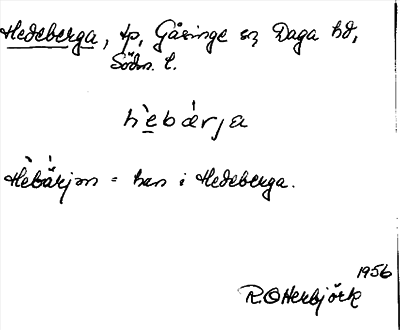 Hedeberga, tp, Gåsinge sn, Daga hd,
Södm. l.
hèbárja
Hèbárjan = han i Hedeberga.
1956
R. Otterbjörk